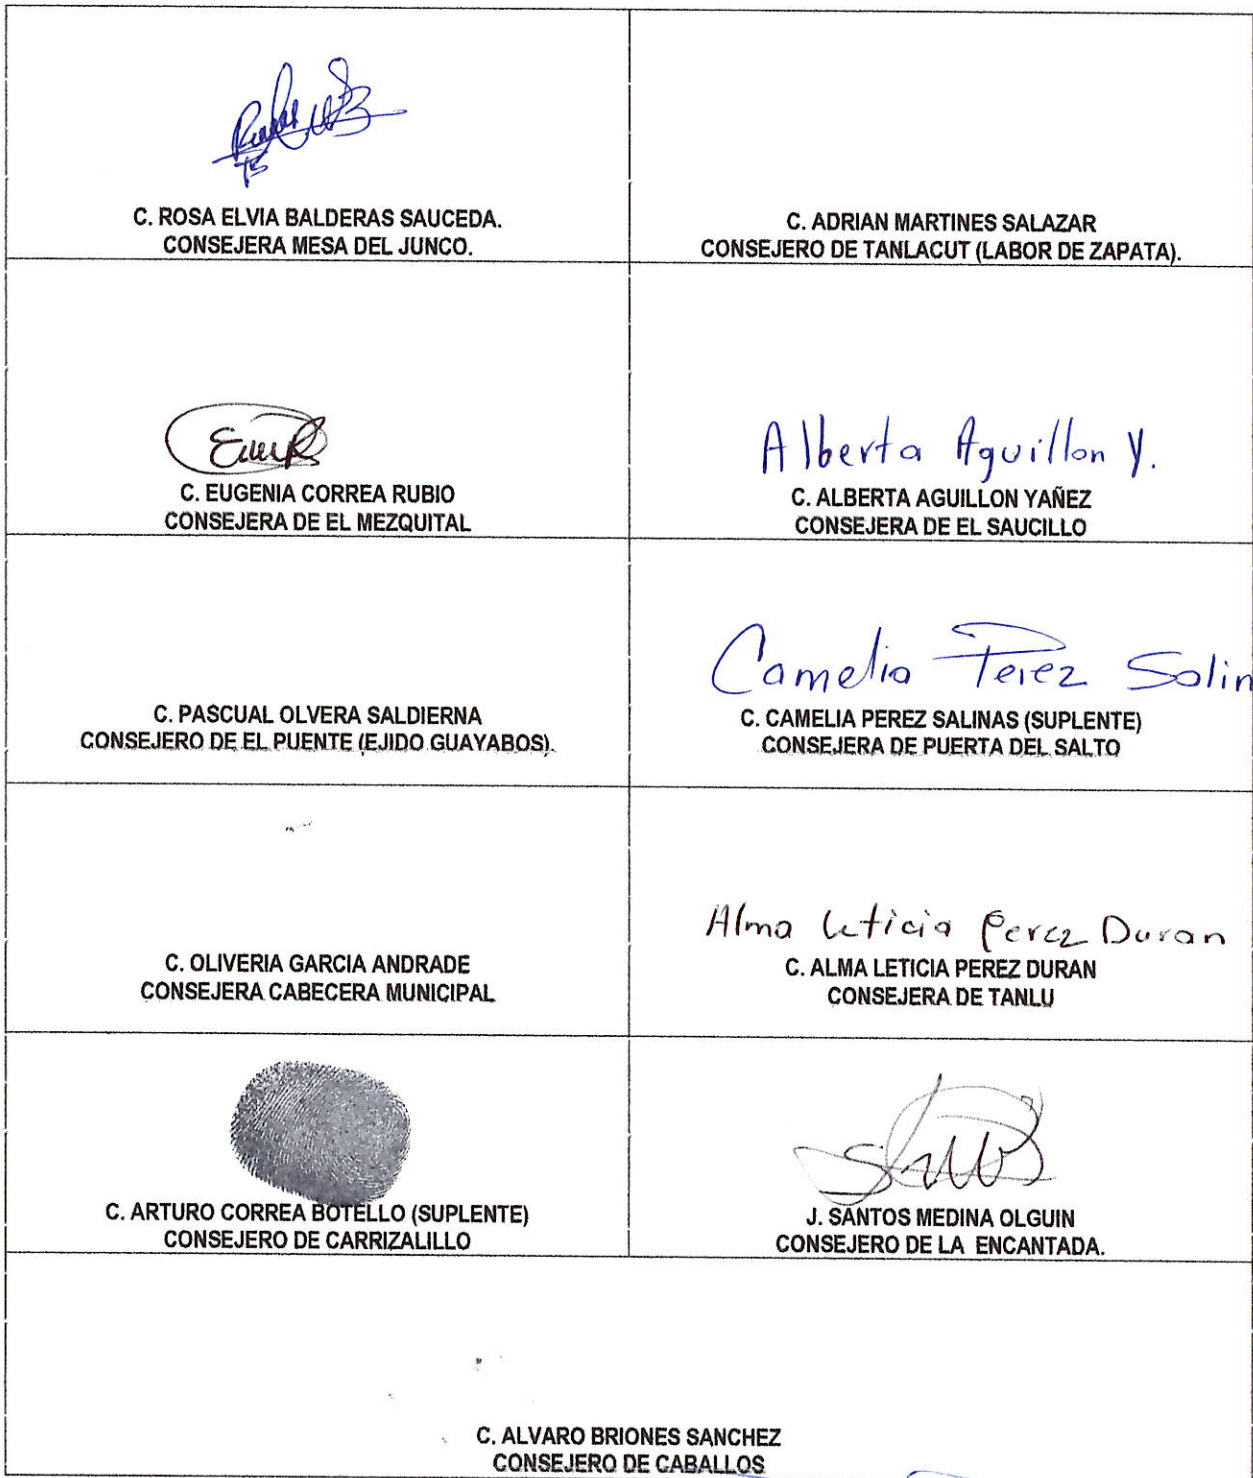 C. ROSA ELVIA BALDERAS SAUCEDA.
CONSEJERA MESA DEL JUNCO.
C. ADRIAN MARTINES SALAZAR
CONSEJERO DE TANLACUT (LABOR DE ZAPATA).
C. EUGENIA CORREA RUBIO
CONSEJERA DE EL MEZQUITAL
Alberta Aguillon Y.
C. ALBERTA AGUILLON YAÑEZ
CONSEJERA DE EL SAUCILLO
C. PASCUAL OLVERA SALDIERNA
CONSEJERO DE EL PUENTE (EJIDO GUAYABOS).
Camelia Perez Salin
C. CAMELIA PEREZ SALINAS (SUPLENTE)
CONSEJERA DE PUERTA DEL SALTO
C. OLIVERIA GARCIA ANDRADE
CONSEJERA CABECERA MUNICIPAL
Alma Leticia Perez Duran
C. ALMA LETICIA PEREZ DURAN
CONSEJERA DE TANLU
C. ARTURO CORREA BOTELLO (SUPLENTE)
CONSEJERO DE CARRIZALILLO
J. SANTOS MEDINA OLGUIN
CONSEJERO DE LA ENCANTADA.
C. ALVARO BRIONES SANCHEZ
CONSEJERO DE CABALLOS